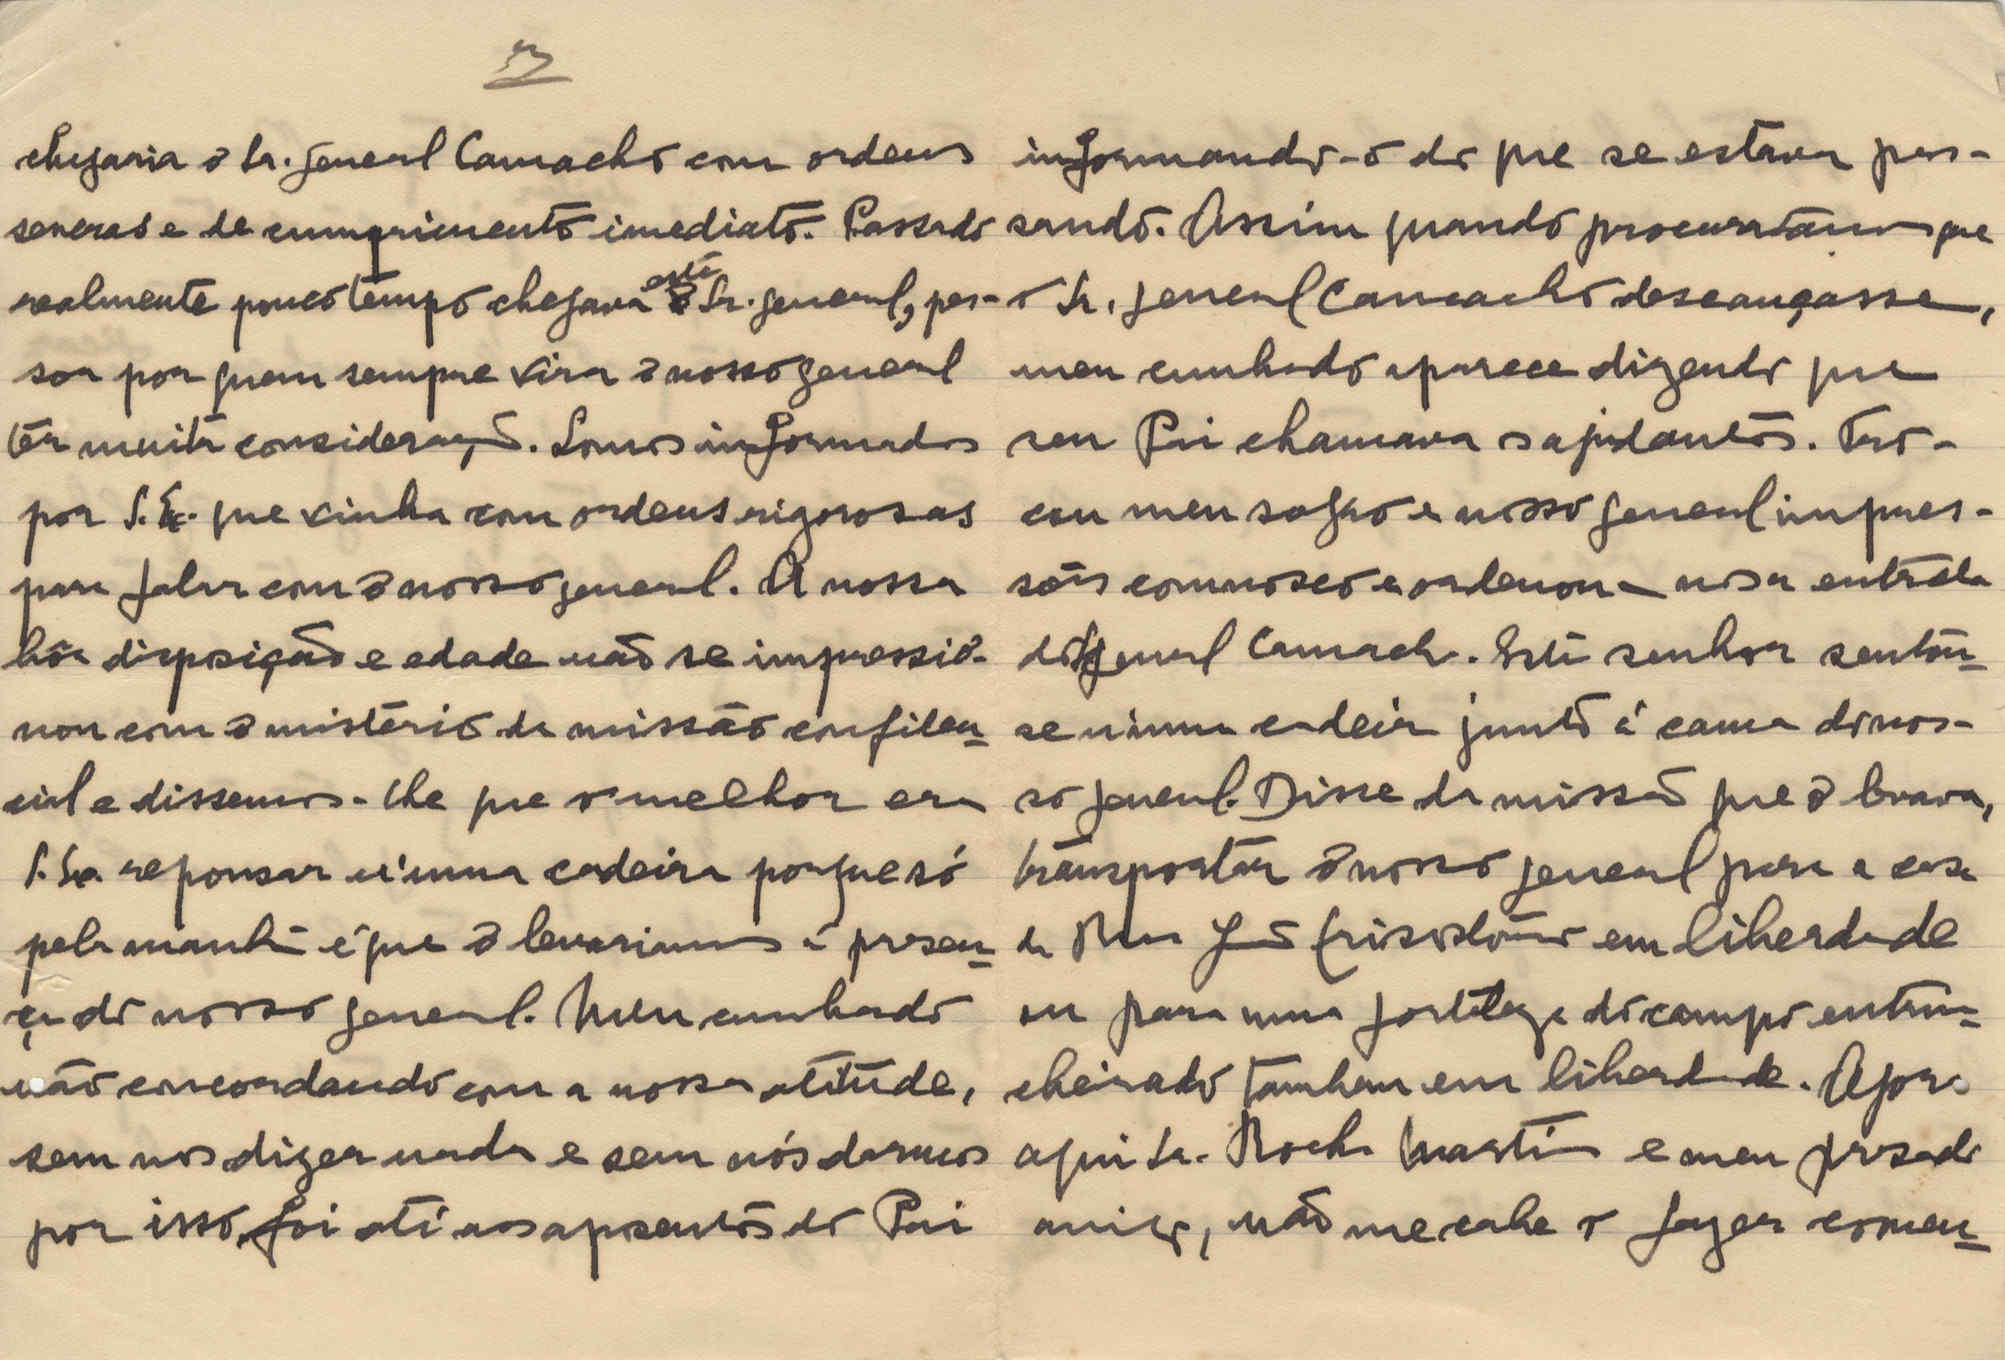 3
chegaria o Sr. general Camacho com ordens
severas e de cumprimento imediato. Passado
realmente pouco tempo chegava este Sr. general, pes-
soa por quem sempre vira o nosso general
ter muita consideração. Somos informados
por S. Ex. que vinha com ordens rigorosas
para falar com o nosso general. A nossa
bôa disposição e edade não se impressio-
nou com o misterio da missão confiden-
cial e dissemos-lhe que o melhor era
S. Exa repousar n'uma cadeira porque só
pela manhã é que o levariamos á presen-
ça do nosso general. Meu cunhado
não concordando com a nossa atitude,
sem nos dizer nada e sem nós darmos
por isso, foi até aos aposentos do Pai
informando-o do que se estava pas-
sando. Assim quando procuravamos que
o Sr. general Camacho descançasse,
meu cunhado aparece dizendo que
seu Pai chamava os ajudantes. Tro-
cou meu sogro e nosso general impres-
sões comnosco e ordenou-nos a entrada
do general Camacho. Este senhor sentou-
se n'uma cadeira junto á cama do nos-
so general. Disse da missão que o levava,
transportar o nosso general para a casa
da Rua João Crisostomo em liberdade
ou para uma fortaleza do campo entrin-
cheirado tambem em liberdade. Agora
aqui Sr. Rocha Martins e meu prezado
amigo, não me cabe o fazer comen-